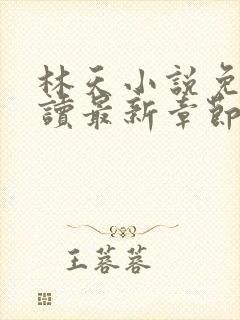 林天小說免
讀最新章節
王蓉蓉